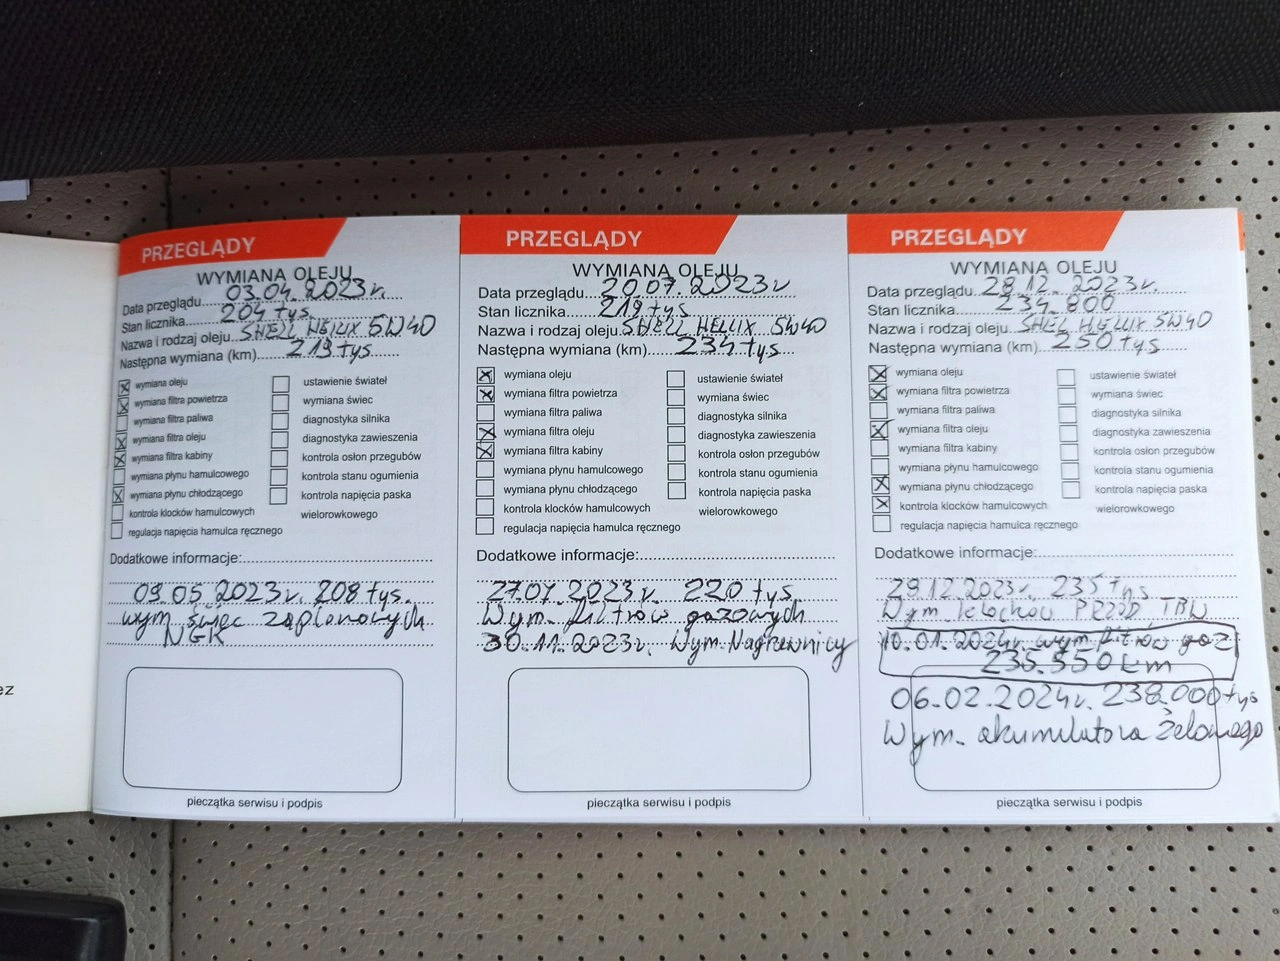 PRZEGLĄDY
WYMIANA OLEJU
Data przeglądu 03.04.2023r.
Stan licznika 204 tys.
Nazwa i rodzaj oleju SHELL HELLIX 5W40
Następna wymiana (km) 219 tys
wymiana oleju
wymiana filtra powietrza
wymiana filtra paliwa
wymiana filtra oleju
wymiana filtra kabiny
wymiana płynu hamulcowego
wymiana płynu chłodzącego
kontrola klocków hamulcowych
regulacja napięcia hamulca ręcznego
ustawienie świateł
wymiana świec
diagnostyka silnika
diagnostyka zawieszenia
kontrola osłon przegubów
kontrola stanu ogumienia
kontrola napięcia paska
wielorowkowego
Dodatkowe informacje:
09.05.2023r. 208 tys.
wym. świec zapłonowych
NGK
pieczątka serwisu i podpis
PRZEGLĄDY
WYMIANA OLEJU
Data przeglądu 20.07.2023r
Stan licznika 219 tys
Nazwa i rodzaj oleju SHELL HELLIX 5W40
Następna wymiana (km) 234 tys
wymiana oleju
wymiana filtra powietrza
wymiana filtra paliwa
wymiana filtra oleju
wymiana filtra kabiny
wymiana płynu hamulcowego
wymiana płynu chłodzącego
kontrola klocków hamulcowych
regulacja napięcia hamulca ręcznego
ustawienie świateł
wymiana świec
diagnostyka silnika
diagnostyka zawieszenia
kontrola osłon przegubów
kontrola stanu ogumienia
kontrola napięcia paska
wielorowkowego
Dodatkowe informacje:
27.07.2023r. 220 tys.
Wym. filtrów gazowych
30.11.2023r. Wym. Nagrzewnicy
pieczątka serwisu i podpis
PRZEGLĄDY
WYMIANA OLEJU
Data przeglądu 28.12.2023r.
Stan licznika 234.800
Nazwa i rodzaj oleju SHELL HELLIX 5W40
Następna wymiana (km) 250 tys
wymiana oleju
wymiana filtra powietrza
wymiana filtra paliwa
wymiana filtra oleju
wymiana filtra kabiny
wymiana płynu hamulcowego
wymiana płynu chłodzącego
kontrola klocków hamulcowych
regulacja napięcia hamulca ręcznego
ustawienie świateł
wymiana świec
diagnostyka silnika
diagnostyka zawieszenia
kontrola osłon przegubów
kontrola stanu ogumienia
kontrola napięcia paska
wielorowkowego
Dodatkowe informacje:
29.12.2023r. 235 tys.
Wym. klocków PRZÓD TRW
10.01.2024r. wym fitrów gaz
235.550 km
06.02.2024r. 238.000 tys
Wym. akumulatora Żelowego
pieczątka serwisu i podpis
ez